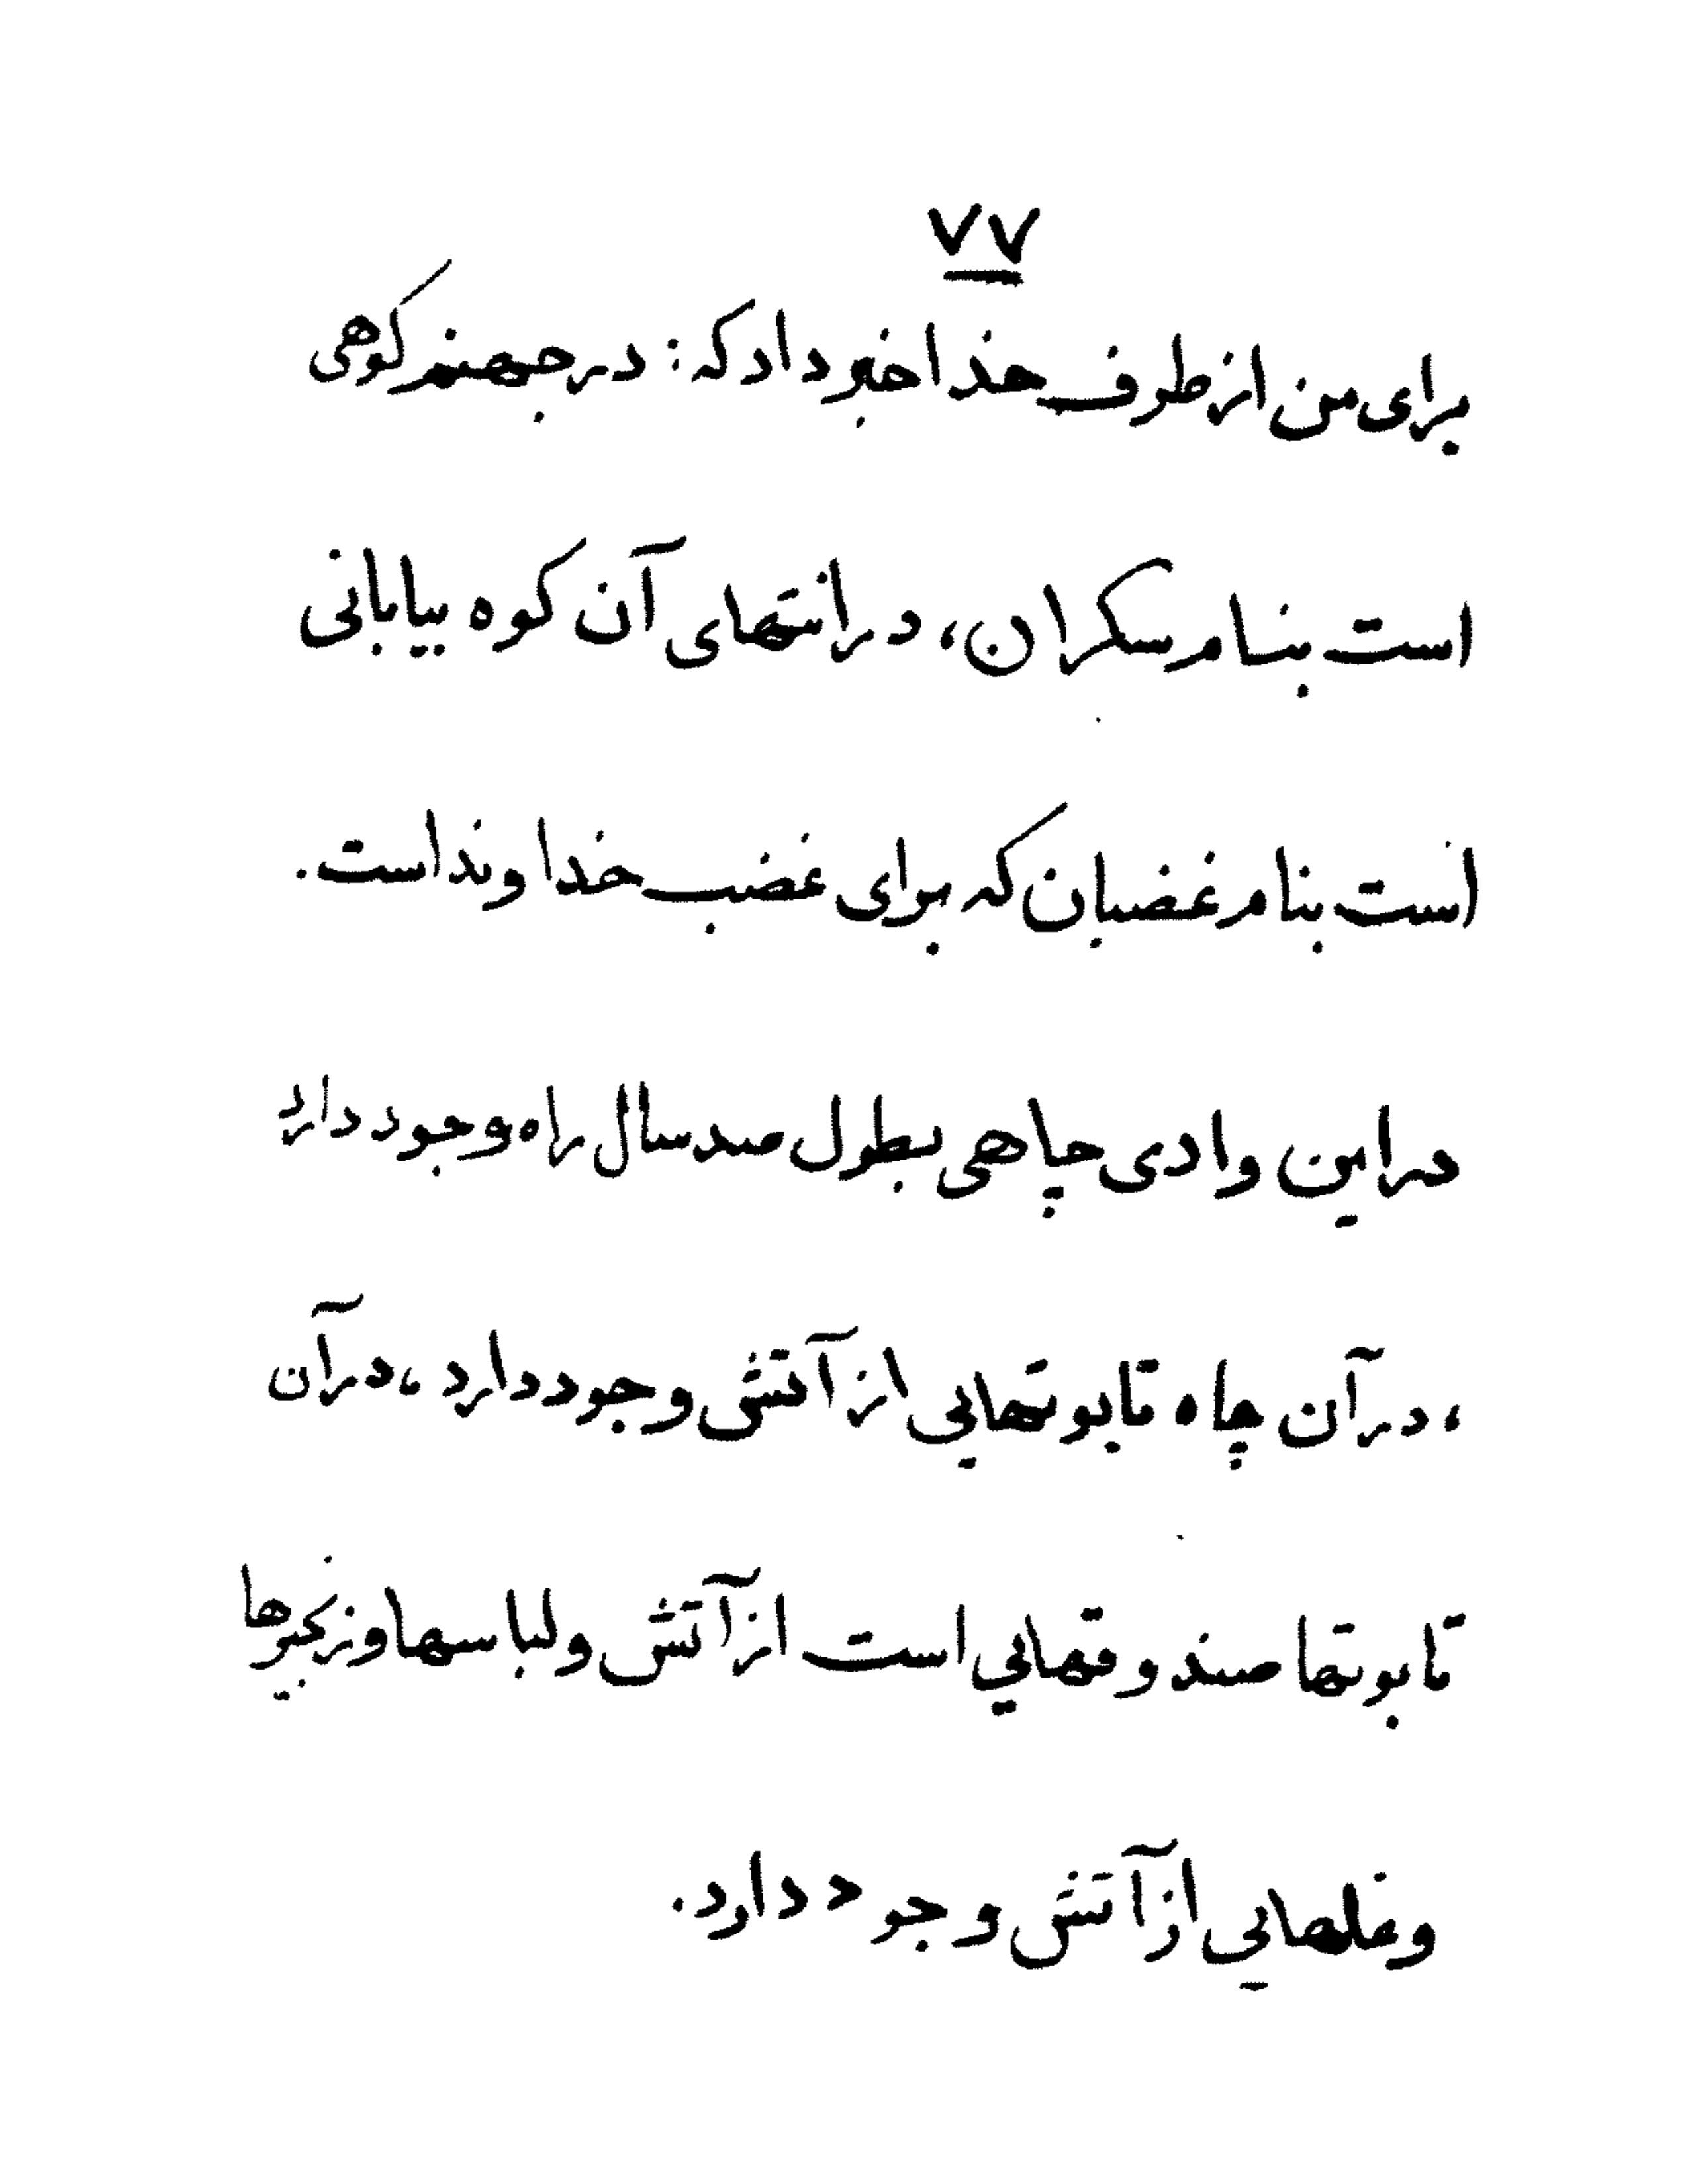 ۷۷
برای من از طرف خدا خبر داد که : در جهنم کوهی
است بنام سکران، در انتهای آن کوه بیابانی
است بنام غضبان که برای غضب خداوند است.
در این وادی چاهی بطول صد سال راه وجود دارد
، در آن چاه تابوتهایی از آتش وجود دارد ، در آن
تابوتها صندوقهایی است از آتش و لباسها و زنجیرها
و غلهایی از آتش وجود دارد.